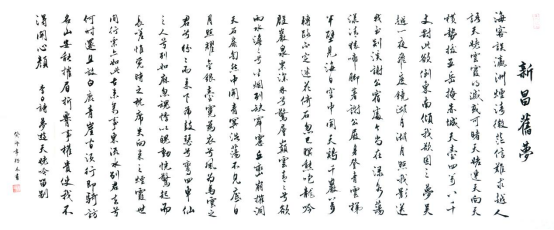 新昌舊夢
海客談瀛洲煙濤微茫信難求越人
語天姥雲霞明滅或可睹天姥連天向天
橫勢拔五岳掩赤城天臺四萬八千
丈對此欲倒東南傾我欲因之夢吳
越一夜飛度鏡湖月湖月照我影送
我至剡溪謝公宿處今尚在淥水蕩
漾清猿啼腳著謝公屐身登青雲梯
半壁見海日空中聞天鷄千巖萬
轉路不定迷花倚石忽已暝熊咆龍吟
殷巖泉慄深林兮驚層巔雲青青兮欲
雨水澹澹兮生煙列缺霹靂丘巒崩摧洞
天石扉訇然中開青冥浩蕩不見底日
月照耀金銀臺霓為衣兮風為馬雲之
君兮紛紛而來下虎鼓瑟兮鸞回車仙
之人兮列如麻忽魂悸以魄動怳驚起而
長嗟惟覺時之枕席失向來之煙霞世
間行樂亦如此古來萬事東流水別君去兮
何時還且放白鹿青崖間須行即騎訪
名山安能摧眉折腰事權貴使我不
得開心顏 李白詩夢遊天姥吟留別